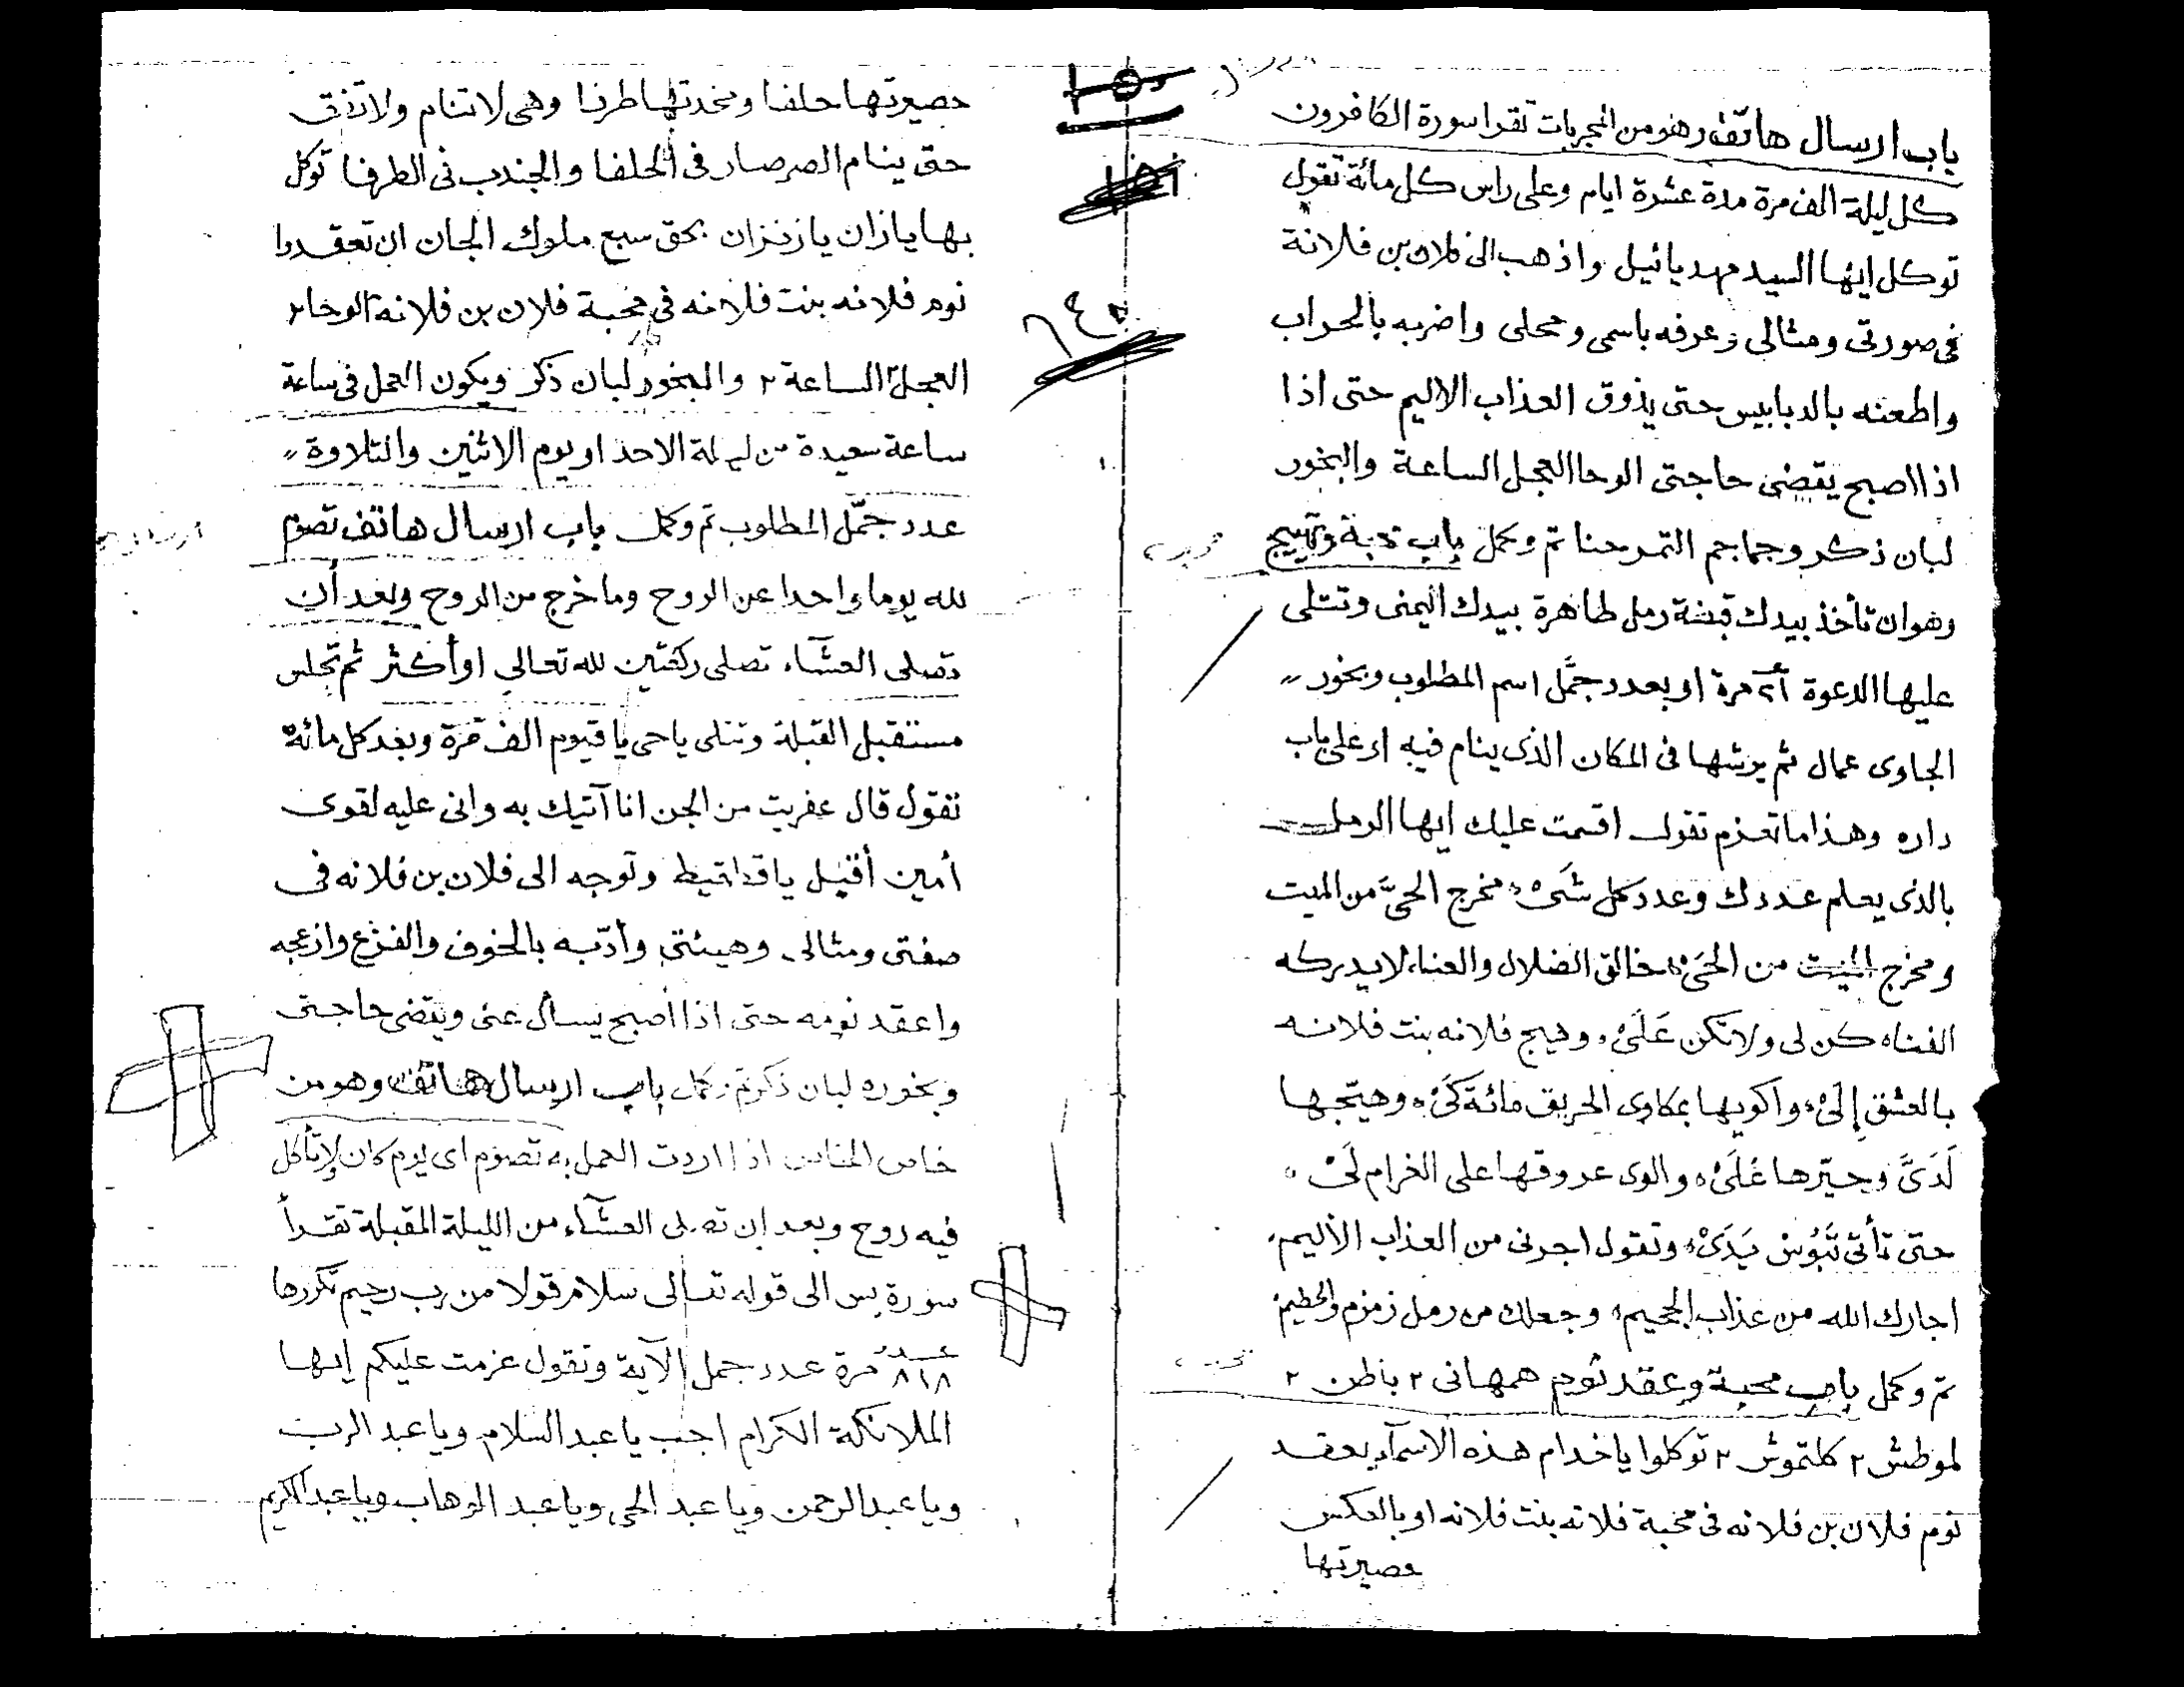 باب ارسال هاتف وهو من المجربات تقرا سورة الكافرون
كل ليلة الف مرة مدة عشرة ايام وعلى راس كل مائة تقول
توكل ايها السيد مهديائيل واذهب الى فلان بن فلانة
فى صورتى ومثالى وعرفه باسمى ومحلى واضربه بالحراب
واطعنه بالدبابيس حتى يذوق العذاب الاليم حتى اذا
اذا اصبح يقضى حاجتى الوحا العجل الساعة والبخور
لبان ذكر وجماجم التمرحنا تم وكمل باب محبة وتهييج
وهو ان تأخذ بيدك قبضة رمل طاهرة بيدك اليمنى وتتلى
عليها الدعوة مرة او بعدد جمَّل اسم المطلوب وبخور
الجاوى عمال ثم يرشها فى المكان الذى ينام فيه او على باب
داره وهذا ما تعزم تقول اقسمت عليك ايها الرمل
بالذى يعلم عددك وعدد كل شَىْء مخرج الحىَّ من الميت
ومخرج الميت من الحَىْ خالق الضلال والعناء لا يدركه
الفناء كن لى ولا تكن عَلَىْ وهيج فلانه بنت فلانه
بالعشق إلَىْ واكويها بمكاوى الحريق مائة كَىْ وهيّجها
لَدَىَّ وحيّرها عَلَىْ والوى عروقها على الغرام لَىْ
حتى تأتى تَبُوْس يَدَىْ وتقول اجرنى من العذاب الأليم
اجارك الله من عذاب الجحيم وجعلك من رمل زمزم والحطيم
تم وكمل باب محبة وعقد نوم همهانى ٢ باطن ٢
لموطش ٢ كلتموش ٢ توكلوا يا خدام هذه الاسمآء بعقد
نوم فلان بن فلانه فى محبة فلانه بنت فلانه او بالعكس
حصيرتها
١٥٠
١٥١
حصيرتها حلفا ومخدتها طرفا وهى لا تنام ولا
حتى ينام الصرصار فى الحلفا والجندب فى الطرفا توكل
بها يازان يازنزان بحق سبع ملوك الجان ان تعقدوا
نوم فلانه بنت فلانه فى محبة فلان بن فلانه الوحا ٢
العجل ٢ الساعة ٢ والبخور لبان ذكر ويكون العمل فى ساعة
ساعة سعيدة من ليلة الاحد او يوم الاثنين والتلاوة
عدد جمّل المطلوب تم وكمل باب ارسال هاتف تصوم
لله يوما واحدا عن الروح وما خرج من الروح وبعد أن
تصلى العشآء تصلى ركعتين لله تعالى او أكثر ثم تجلس
مستقبل القبلة وتتلى يا حى يا قيوم الف مرة وبعد كل مائة
تقول قال عفريت من الجن انا آتيك به وانى عليه لقوى
أمين أقبل يا وتوجه الى فلان بن فلانه فى
صفتى ومثالى وهيئتى وأدّبه بالخوف والفزع وازعجه
واعقد نومه حتى اذا اصبح يسأل عنى ويقضى حاجتى
وبخوره لبان ذكر تم وكمل باب ارسال هاتف وهو من
خاص الخاص اذا اردت العمل به تصوم اى يوم كان ولا تأكل
فيه روح وبعد ان تصلى العشآء من الليلة المقبلة تقرأ
سورة يس الى قوله تعالى سلام قولا من رب رحيم تكررها
عدد ٨١٨ مرة عدد جمل الآية وتقول عزمت عليكم ايها
الملائكة الكرام اجب يا عبد السلام ويا عبد الرب
ويا عبد الرحمن ويا عبد الحى ويا عبد الوهاب ويا عبد الكريم